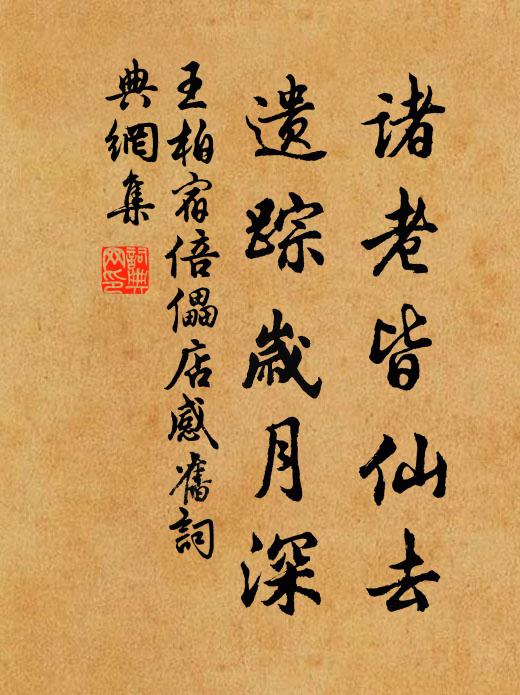 诸老皆仙去
遗踪岁月深
王柏宿倍儡店感舊詞
典網集
詞典
网印